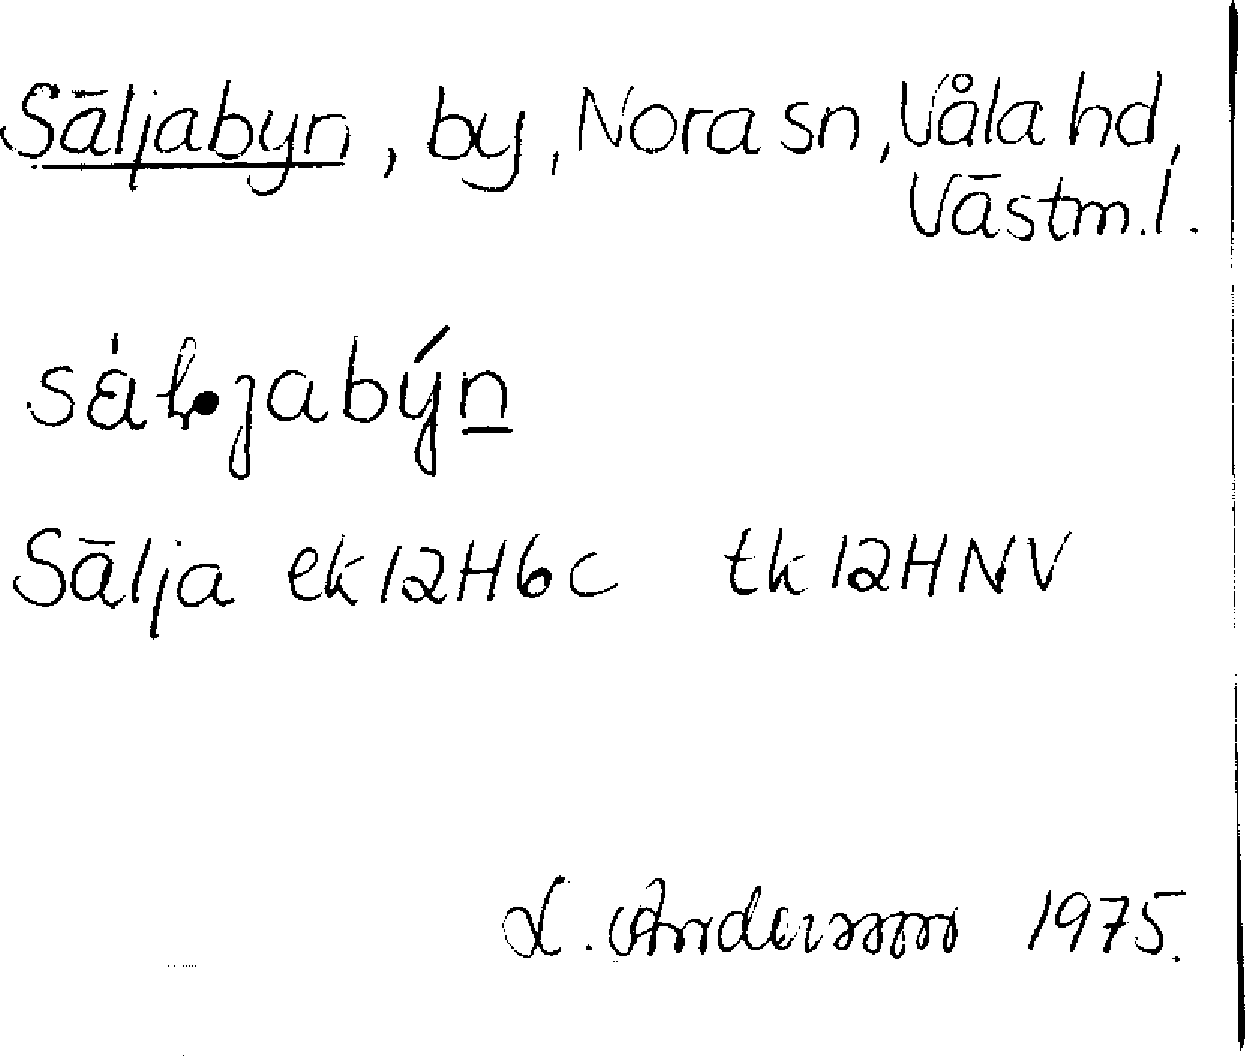 Säljabyn, by, Nora sn, Våla hd,
Västm. l.
Sälja ek 12H6c tk 12HNV
L. Andersson 1975.